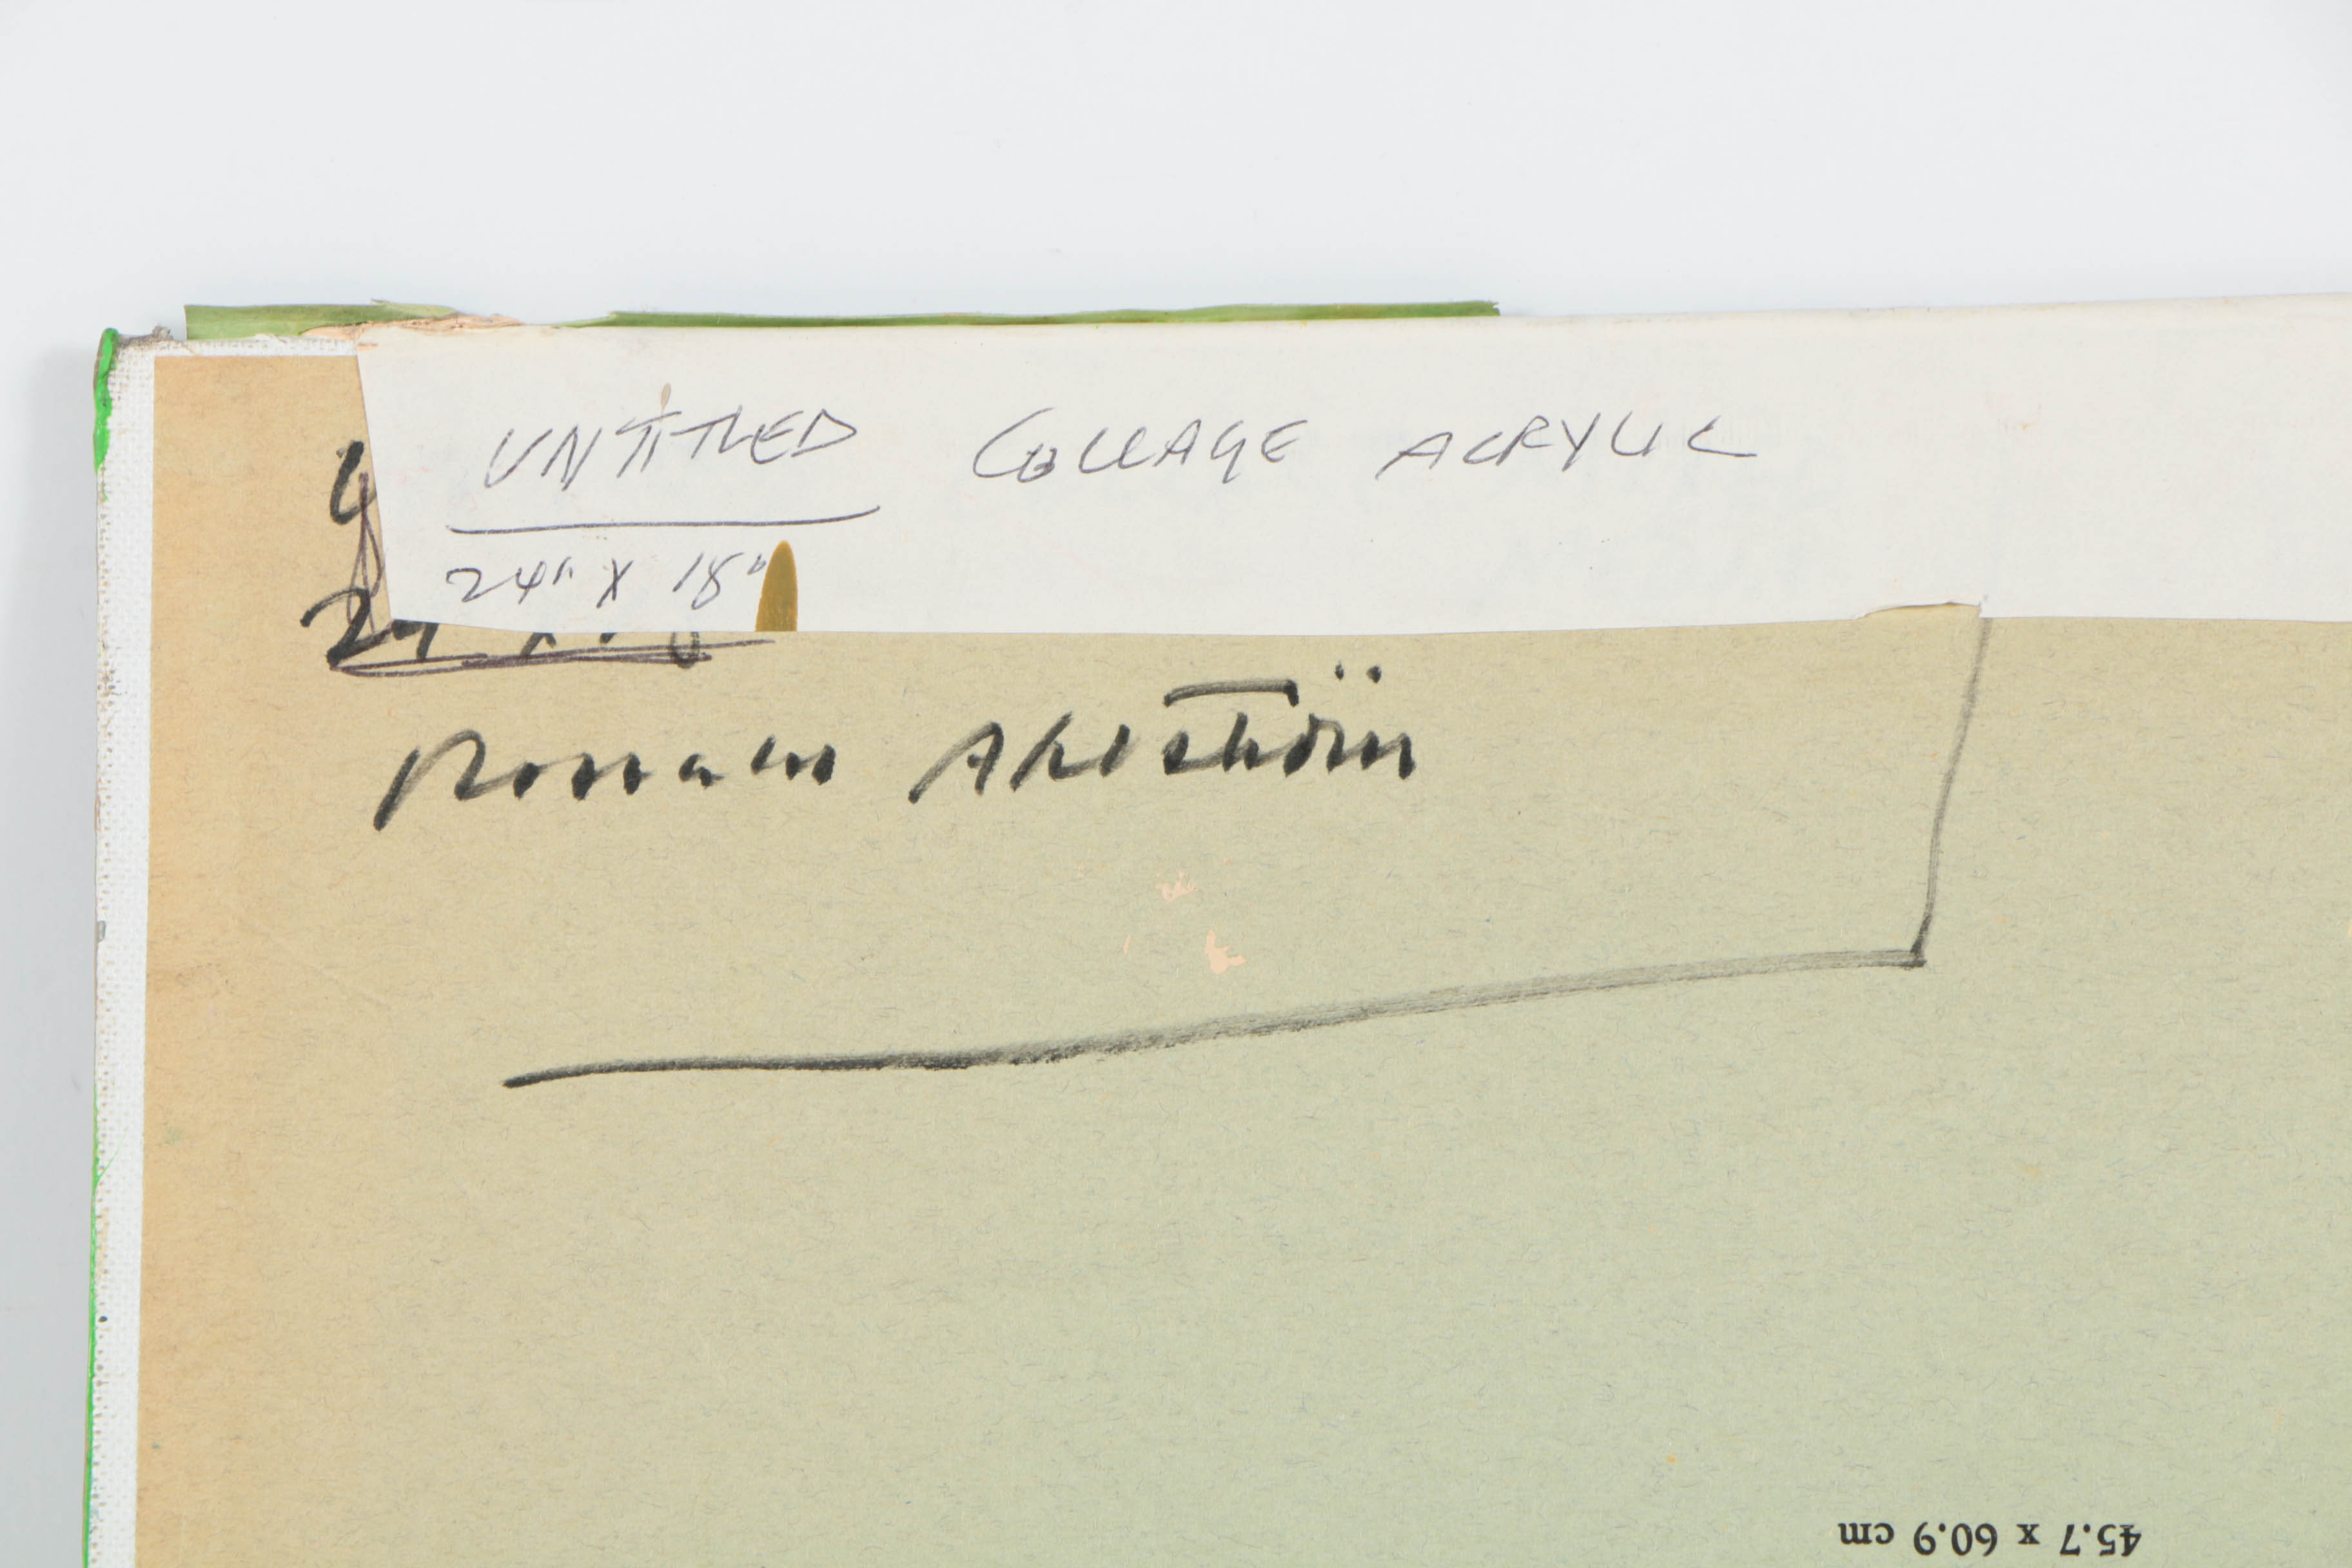 UNTITLED COLLAGE ACRYLIC
24" X 18"
Ronald Ahlström
45.7 x 60.9 cm